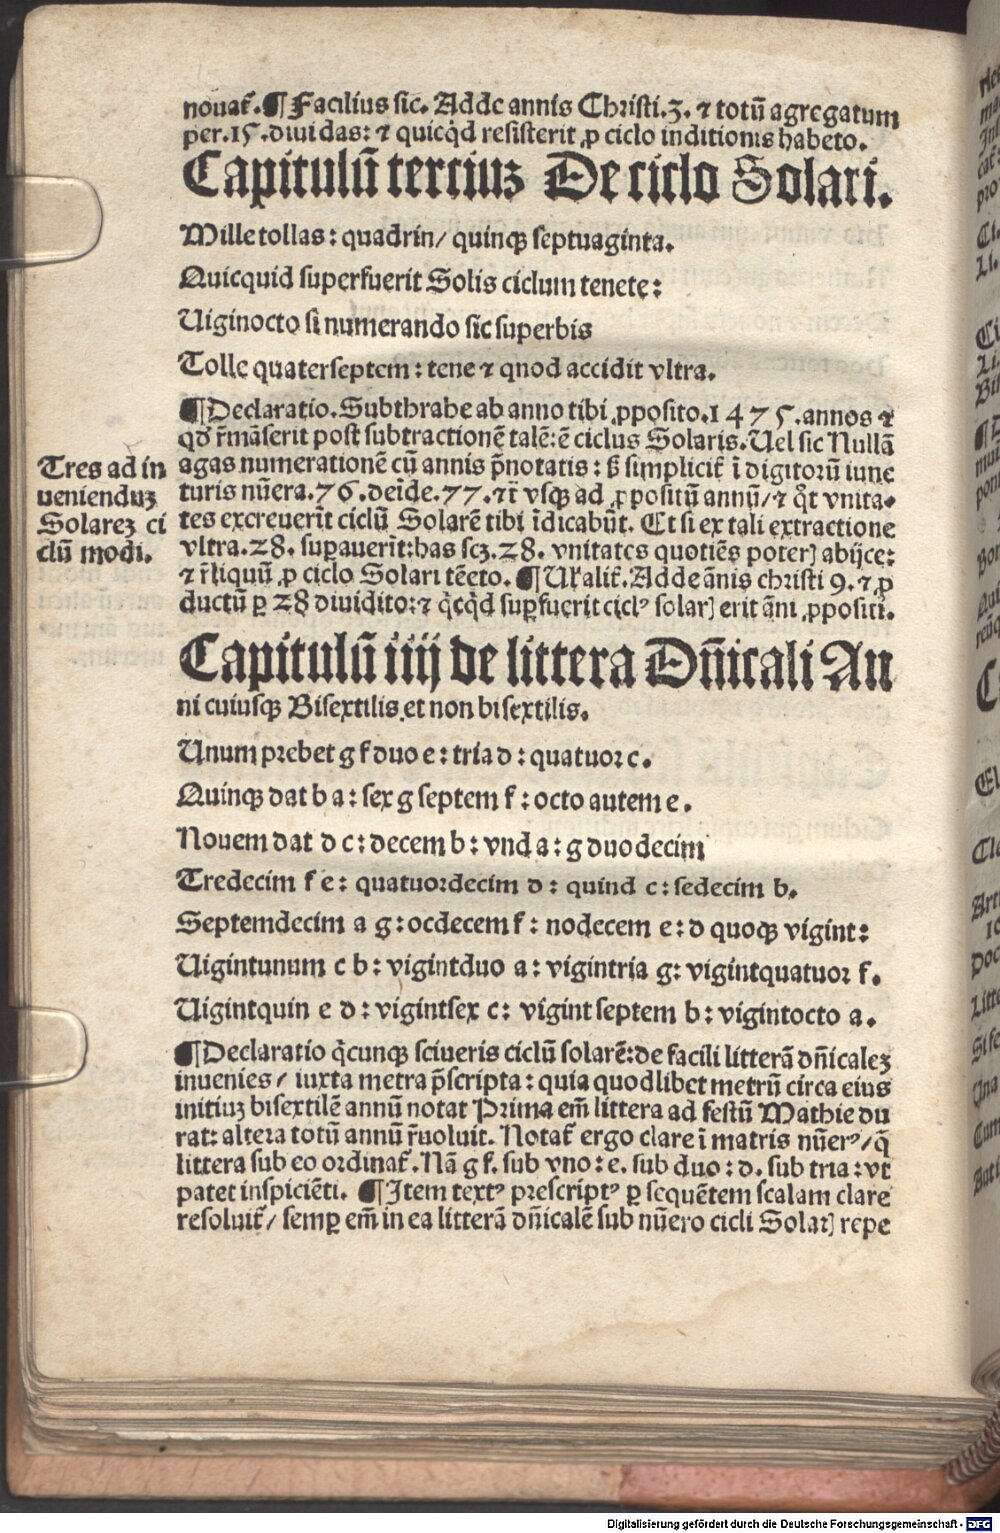 nouat̃.¶Facilius sic. Adde annis Christi.3. ⁊ totũ agregatum
per.15.diuidas: ⁊ quicq̇d resisterit ꝓ ciclo inditionis habeto.
Capitulũ terciuꝫ De ciclo Solari.
Mille tollas: quadrin/ quinqꝫ septuaginta.
Quicquid superfuerit Solis ciclum tenete:
Uiginocto si numerando sic superbis
Tolle quaterseptem: tene ⁊ quod accidit vltra.
¶Declaratio.Subthrabe ab anno tibi ꝓposito.1475.annos ⁊
qđ r̃mãserit post subtractionẽ talẽ:ẽ ciclus Solaris.Uel sic Nullã
agas numerationẽ cũ annis p̃notatis: ß simplicit̃ ĩ digitorũ iunc
turis nũera.76.deĩde.77.⁊c̃ vsqꝫ ad ꝓpositũ annũ/⁊ q̊t vnita-
tes excreuerĩt ciclũ Solarẽ tibi ĩdicabũt. Et si ex tali extractione
vltra.28. suꝑauerĩt:has scꝫ.28. vnitates quotiẽs poterꝭ abijce:
⁊ r̃liquũ ꝓ ciclo Solari tẽeto.¶Ul̃ alit̃.Adde ãnis christi 9.⁊ ꝓ
ductũ ꝑ 28 diuidito:⁊ q̇cq̇d suꝑfuerit ciclꝰ solarꝭ erit ãni ꝓpositi.
Tres ad in
uenienduꝫ
Solareꝫ ci
clũ modi.
Capitulũ iiij de littera Dñicali An
ni cuiusqꝫ Bisextilis et non bisextilis.
Unum prebet g f duo e: tria d: quatuor c.
Quinqꝫ dat b a: sex g septem f: octo autem e.
Nouem dat d c: decem b: vnd a: g duodecim
Tredecim f e: quatuordecim d: quind c: sedecim b.
Septemdecim a g: ocdecem f: nodecem e: d quoqꝫ vigint:
Uigintunum c b: vigintduo a: vigintria g: vigintquatuor f.
Uigintquin e d: vigintsex c: vigint septem b: vigintocto a.
¶Declaratio q̇cunqꝫ sciueris ciclũ solarẽ:de facili litterã dñicaleꝫ
inuenies/ iuxta metra p̃scripta: quia quodlibet metrũ circa eius
initiuꝫ bisextilẽ annũ notat Prima em̃ littera ad festũ Mathie du
rat: altera totũ annũ r̃uoluit. Notat̃ ergo clare ĩ matris nũerꝰ/q̃
littera sub eo ordinat̃.Nã g f. sub vno: e. sub duo: d. sub tria: vt
patet inspiciẽti. ¶Item textꝰ prescriptꝰ ꝑ sequẽtem scalam clare
resoluit̃/ semꝑ em̃ in ea litterã dñicalẽ sub nũero cicli Solarꝭ repe
Digitalisierung gefördert durch die Deutsche Forschungsgemeinschaft - DFG